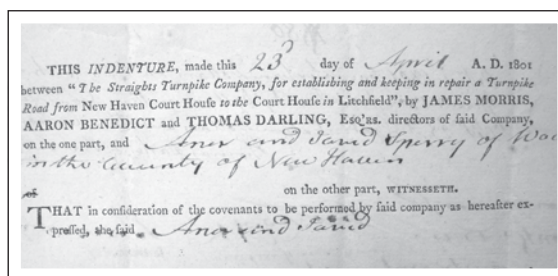 THIS INDENTURE, made this 23d day of April A. D. 1801
between "The Straights Turnpike Company, for establishing and keeping in repair a Turnpike
Road from New Haven Court House to the Court House in Litchfield", by JAMES MORRIS,
AARON BENEDICT and THOMAS DARLING, Esq'rs. directors of said Company,
on the one part, and Aner and Jared Sperry of Woo
in the County of New Haven
of
on the other part, WITNESSETH.
THAT in consideration of the covenants to be performed by said company as hereafter ex-
pressed, the said Aner and Jared